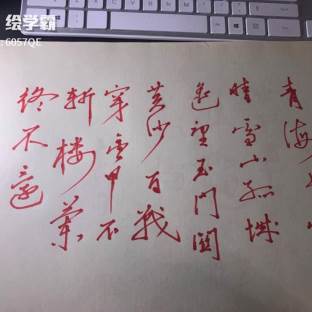 绘学霸
:6057QE
青海
暗雪山孤城
遥望玉门關
黄沙百战
穿金甲不
斩楼蘭
终不還